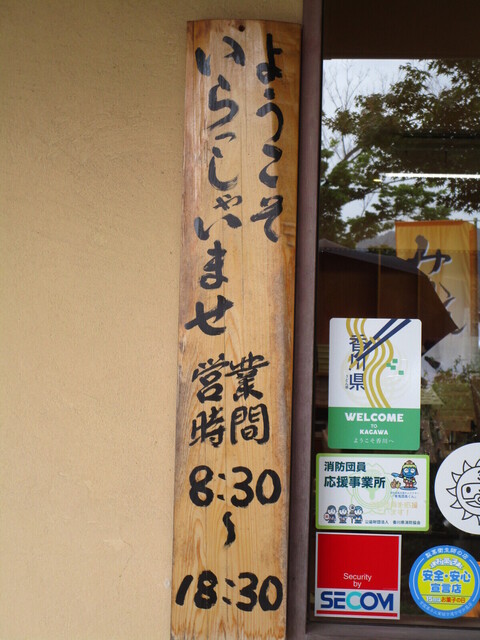 ようこそ
いらっしゃいませ
営業
時間
8:30
〜
18:30
香川県
WELCOME
TO
KAGAWA
ようこそ香川へ
消防団員
応援事業所
公益財団法人 香川県消防協会
Security
by
SECOM
安全・安心
宣言店